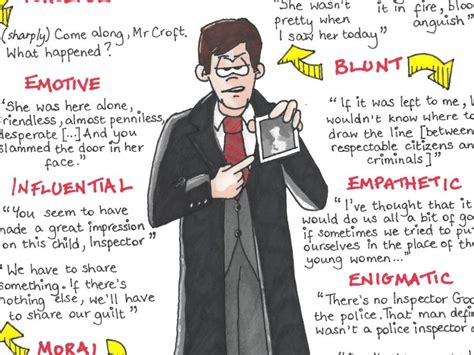 (sharply) Come along, Mr Croft.
What happened?
EMOTIVE
"She was here alone,
friendless, almost penniless,
desperate [...] And you
slammed the door in her
face."
INFLUENTIAL
"You seem to have
made a great impression
on this child, Inspector"
"We have to share
something. If there's
nothing else, we'll have
to share our guilt"
MORAL
"She wasn't
pretty when
I saw her today"
it in fire, bloo
anguish"
BLUNT
"If it was left to me, I
wouldn't know where to
draw the line [between
respectable citizens and
criminals]"
EMPATHETIC
"I've thought that it
would do us all a bit of go
if sometimes we tried to put
ourselves in the place of the
young women..."
ENIGMATIC
"There's no Inspector Goo
the police. That man defin
wasn't a police inspector